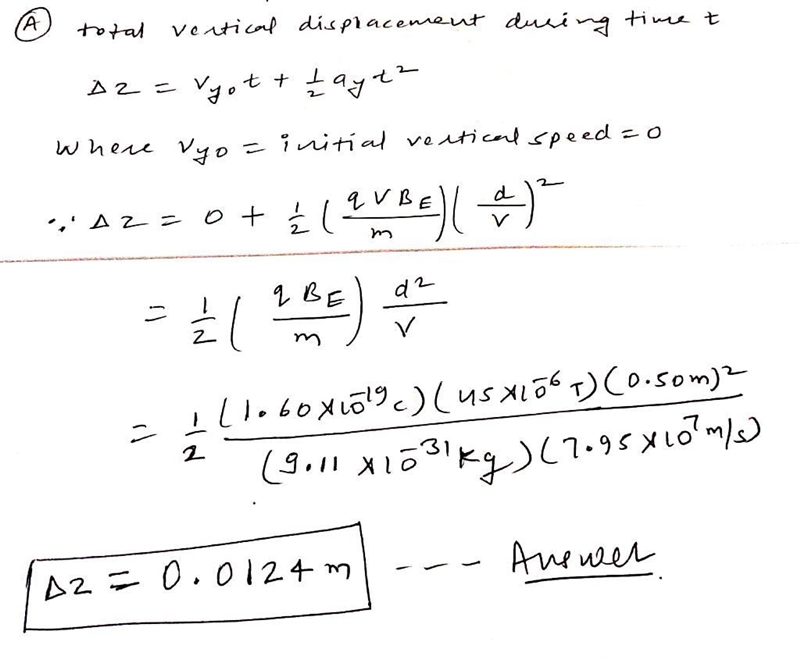 (A) total vertical displacement during time t
Δz = Vy₀t + ½ ayt²
Where Vyo = initial vertical speed = 0
∵ Δz = 0 + ½ (qVBE/m)(d/V)²
= ½ (qBE/m) d²/V
= ½ (1.60×10⁻¹⁹c)(45×10⁻⁶ T)(0.50m)² / (9.11×10⁻³¹kg)(7.95×10⁷m/s)
Δz = 0.0124 m --- Answer.